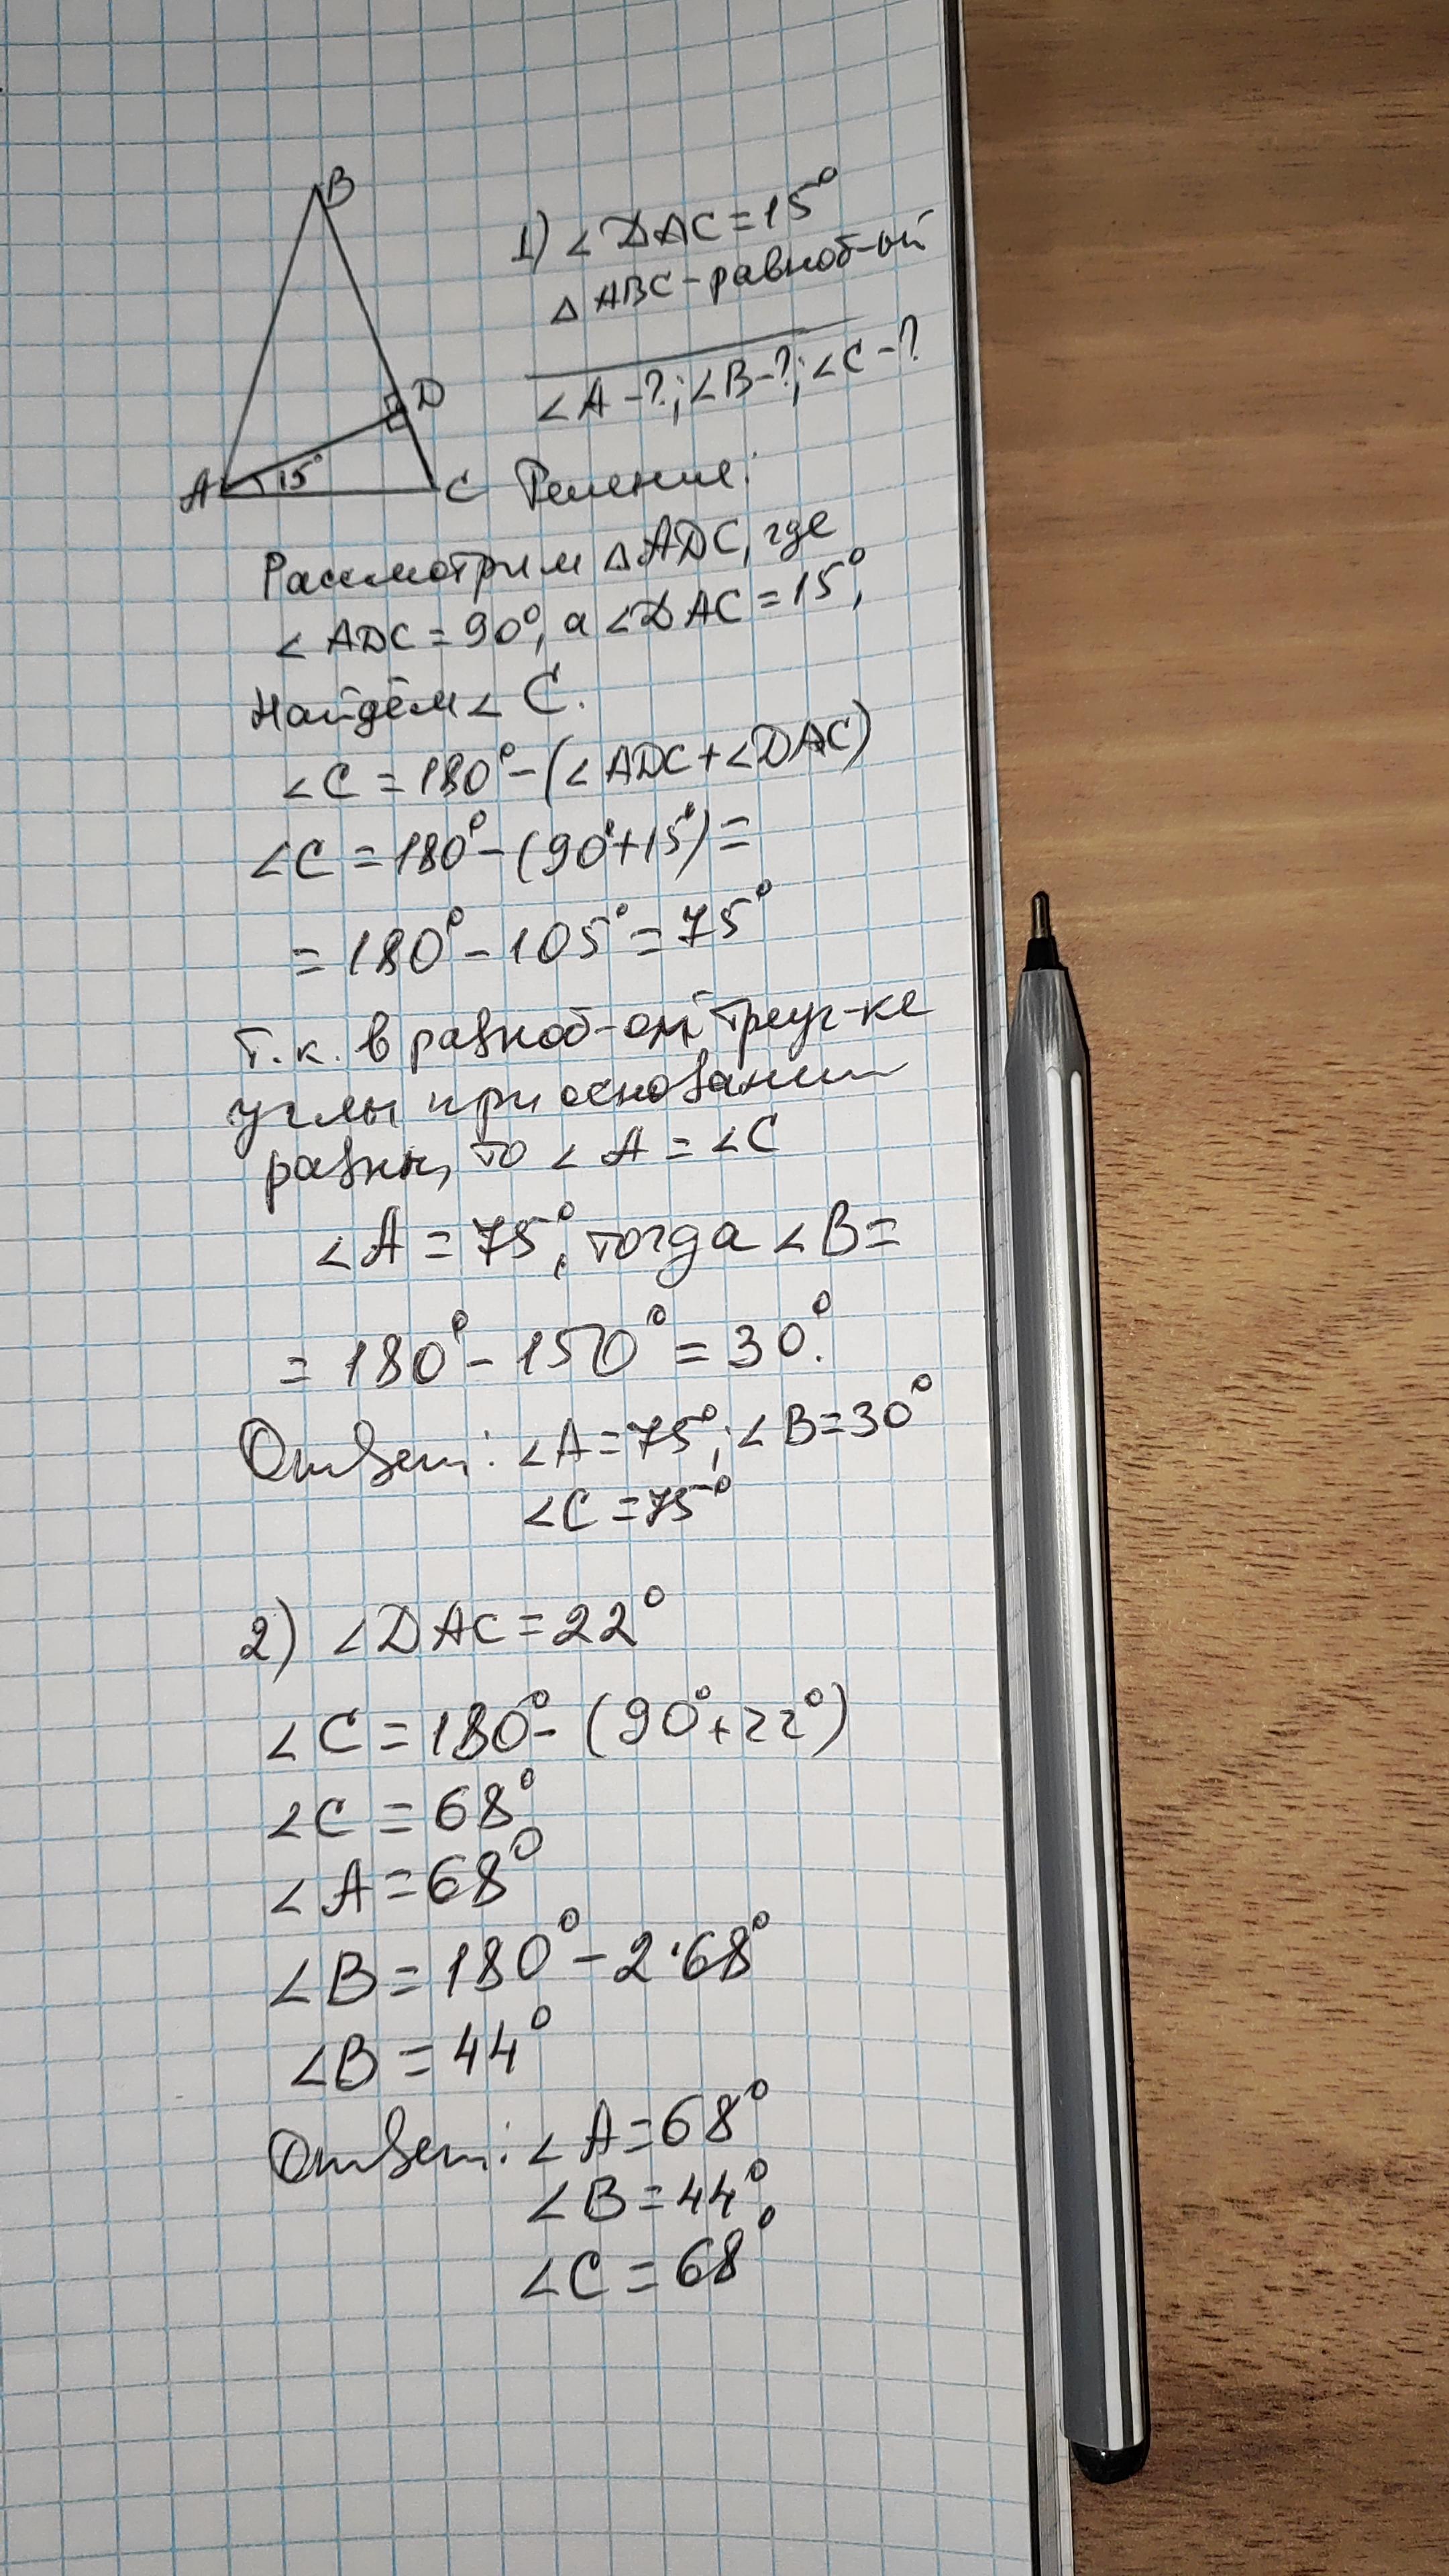 B
D
A
15°
C
1) ∠DAC=15°
△ABC-равноб-ый
∠A-?; ∠B-?; ∠C-?
Решение:
Рассмотрим △ADC, где
∠ADC=90°, а ∠DAC=15°,
Найдём ∠C.
∠C=180°-(∠ADC+∠DAC)
∠C=180°-(90°+15°)=
=180°-105°=75°
Т.к. в равноб-ом треуг-ке
углы при основании
равны, то ∠A=∠C
∠A=75°, тогда ∠B=
=180°-150°=30°.
Ответ: ∠A=75°; ∠B=30°
∠C=75°
2) ∠DAC=22°
∠C=180°-(90°+22°)
∠C=68°
∠A=68°
∠B=180°-2·68°
∠B=44°
Ответ: ∠A=68°
∠B=44°,
∠C=68°